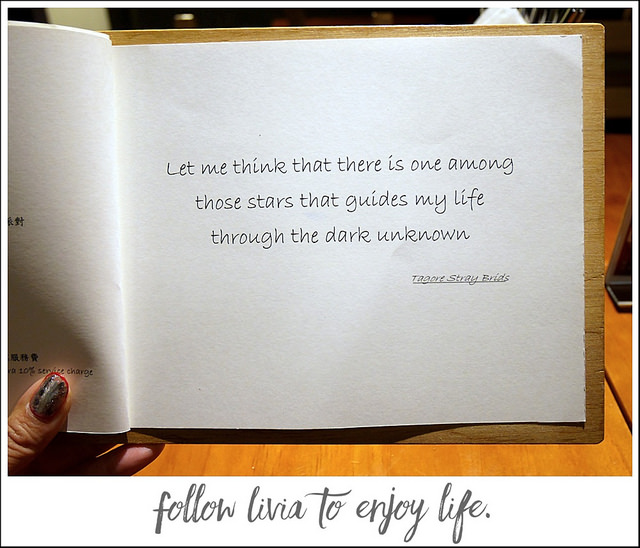 派對
服務費
ra 10% service charge
Let me think that there is one among
those stars that guides my life
through the dark unknown
Tagore Stray Brids
follow livia to enjoy life.